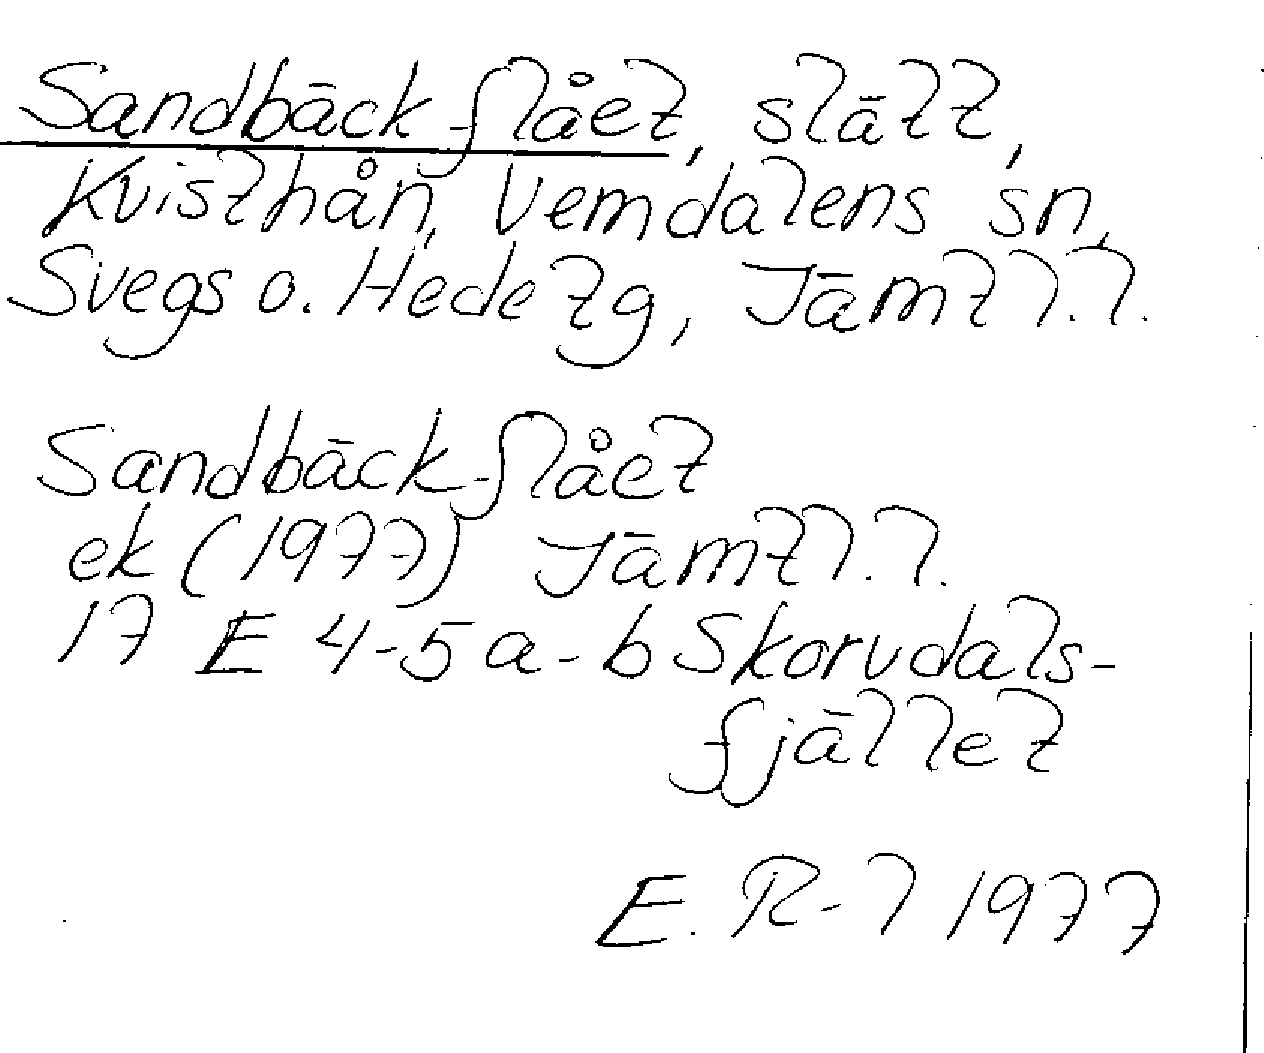 Sandbäck-flået, slått,
Kvisthån, Vemdalens sn,
Svegs o. Hede tg, Jämtl. l.
Sandbäck-flået
ek (1977) Jämtl. l.
17 E 4-5 a-b Skorvdals-
fjället
E. R-l 1977